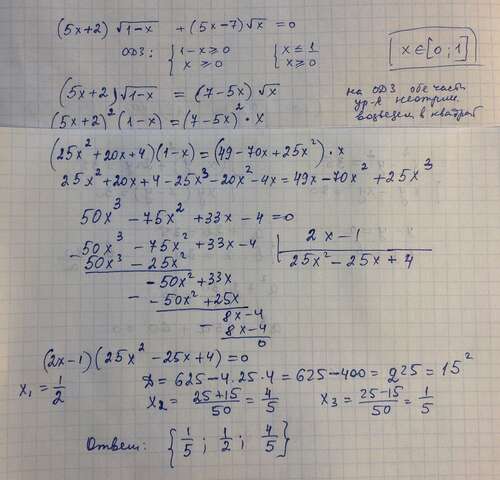 (5x+2) √1-x + (5x-7)√x = 0
ОДЗ: { 1-x ≥ 0 { x ≤ 1
x ≥ 0 x ≥ 0
x ∈ [0 ; 1]
(5x+2)√1-x = (7-5x)√x
на ОДЗ обе части
ур-я неотриц.
возведем в квадрат
(5x+2)²(1-x) = (7-5x)² · x
(25x²+20x+4)(1-x) = (49-70x+25x²) · x
25x²+20x+4-25x³-20x²-4x = 49x-70x²+25x³
50x³ - 75x² + 33x - 4 = 0
50x³ - 75x² + 33x - 4 | 2x - 1
50x³ - 25x² | 25x² - 25x + 4
-50x² + 33x
-50x² + 25x
8x - 4
8x - 4
0
(2x-1)(25x² - 25x + 4) = 0
x₁ = 1/2 D = 625 - 4·25·4 = 625 - 400 = 225 = 15²
x₂ = 25+15/50 = 4/5 x₃ = 25-15/50 = 1/5
Ответ: { 1/5 ; 1/2 ; 4/5 }